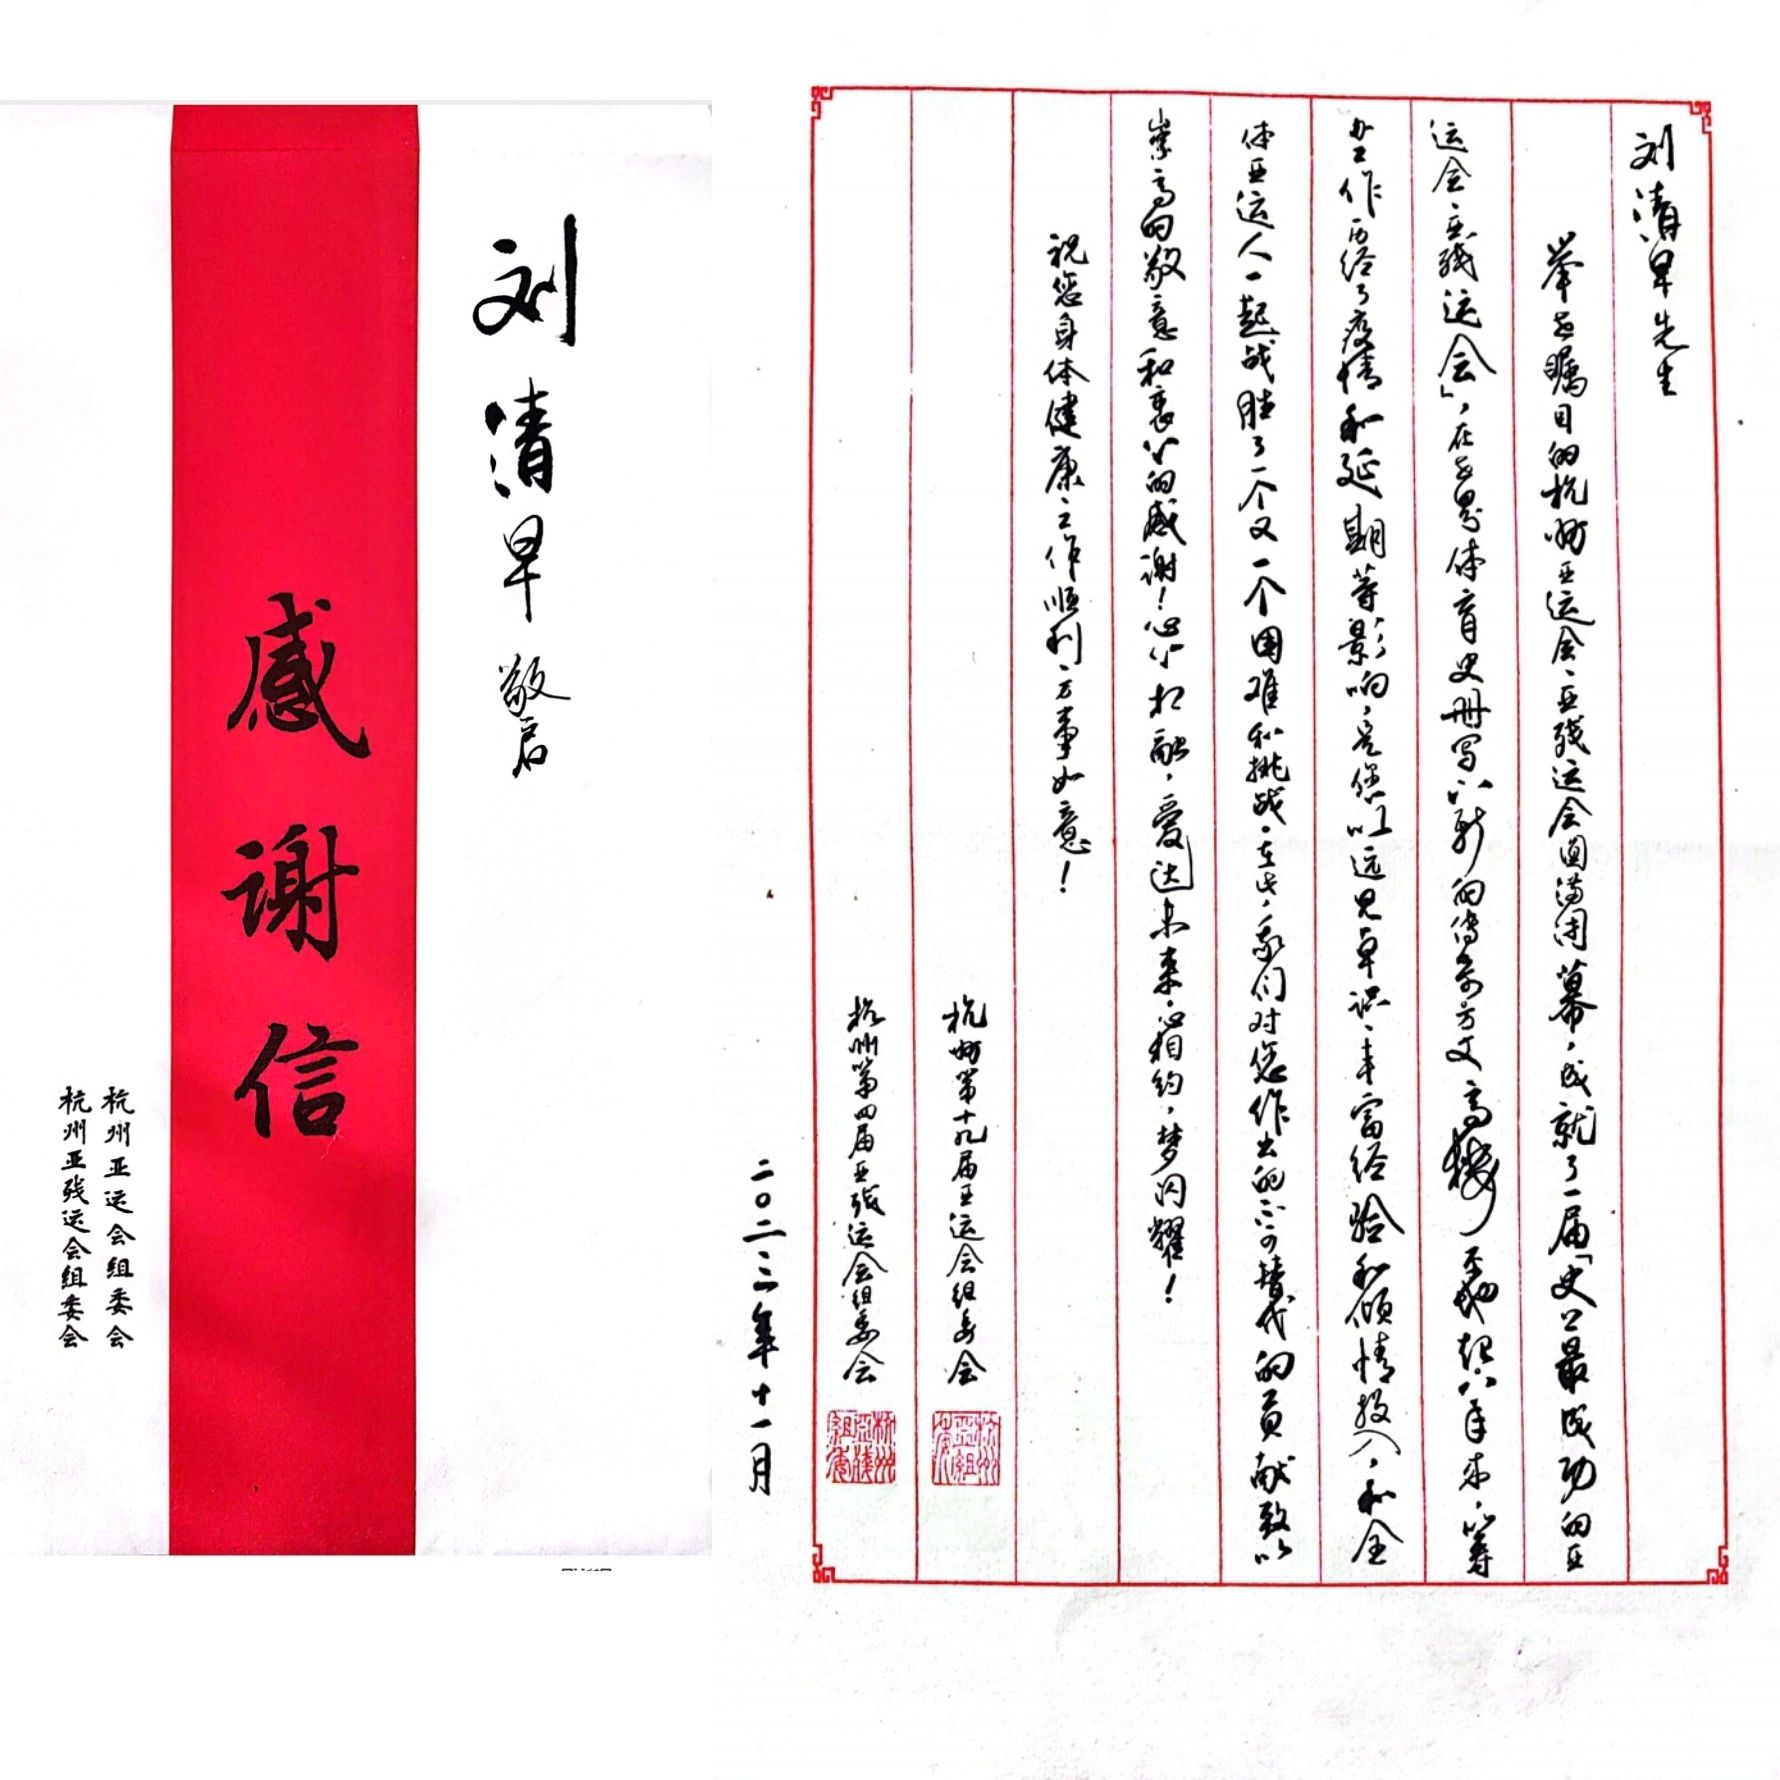 刘清早 敬启
感谢信
杭州亚运会组委会
杭州亚残运会组委会
刘清早先生
举世瞩目的杭州亚运会、亚残运会圆满闭幕，成就了一届「史上最成功的亚
运会、亚残运会」，在世界体育史册写下新的传奇。万丈高楼平地起，八年来，筹
办工作历经了疫情和延期等影响，是您以远见卓识、丰富经验和倾情投入，和全
体亚运人一起战胜了一个又一个困难和挑战。在此，我们对您作出的不可替代的贡献致以
崇高的敬意和衷心的感谢！心心相融，爱达未来。心相约，梦闪耀！
祝您身体健康、工作顺利、万事如意！
杭州第十九届亚运会组委会
杭州亞組委
杭州第四届亚残运会组委会
杭州亞殘組委
二〇二三年十一月